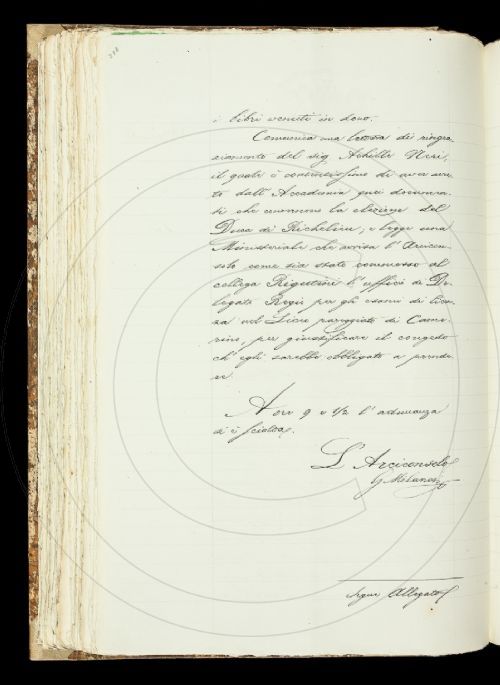 i libri venuti in dono.
Comunica una lettera di ringra-
ziamento del sig. Achille Neri,
il quale è contentissimo di aver avu-
to dall'Accademia quei documen-
ti che concernono la elezione del
Duca di Richelieu, e legge una
Ministeriale che avvisa l'Arcicon-
solo come sia stato commesso al
collega Rigutini l'ufficio di De-
legato Regio per gli esami di licen-
za nel Liceo pareggiato di Came-
rino, per giustificare il congedo
ch'egli sarebbe obbligato a prende-
re.
A ore 9 e 1/2 l'adunanza
si è sciolta.
L'Arciconsolo
G. Milanesi
Segue Allegato